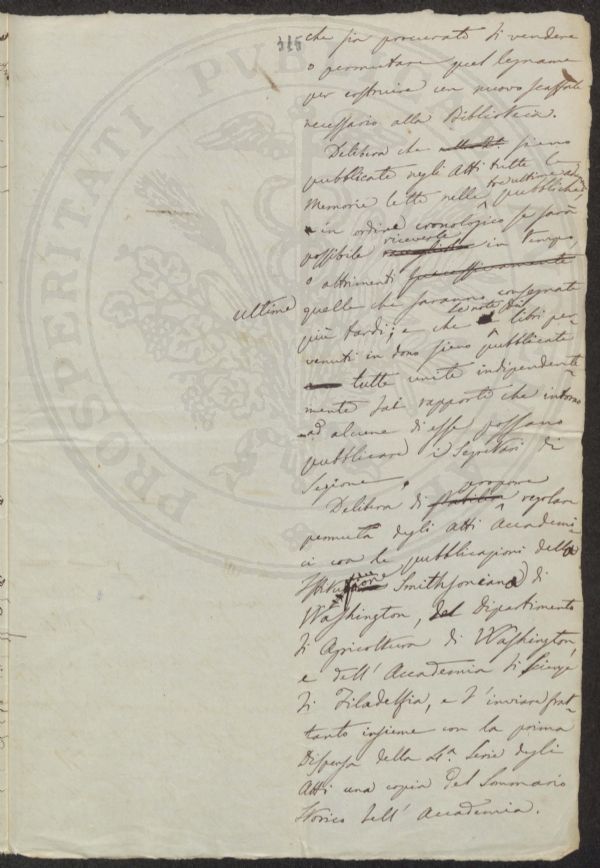 315
che sia procurato di vendere
o permutare quel legname
per costruire un nuovo scaffale
necessario alla Biblioteca.
Delibera che siano
pubblicate negli Atti tutte le
Memorie lette nelle pubbliche
in ordine cronologico se sarà
possibile riceverle in tempo,
o altrimenti successivamente
ultime
quelle che saranno consegnate
più tardi; e che le note dei libri per
venuti in dono sieno pubblicate
tutte unite indipendente
mente dai rapporti che intorno
ad alcune di esse possano
pubblicare i Segretari di
Sezione.
Delibera di proporre regolare
permuta degli Atti Accademi
ci con le pubblicazioni della
Smithsoniana di
Washington, del Dipartimento
di Agricoltura di Washington
e dell'Accademia di Scienze
di Filadelfia, e d'inviare frat
tanto insieme con la prima
Dispensa della 4ª Serie degli
Atti una copia del Sommario
Storico dell'Accademia.
PROSPERITATI PUBLICAE